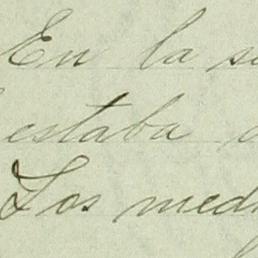 En la s
estaba
Los med